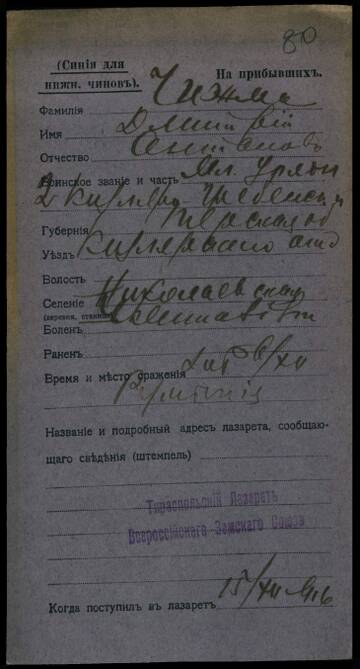 80
(Синія для нижн. чиновъ).
На прибывшихъ.
Фамилія Чижма
Имя Дмитрій
Отчество
Воинское званіе и часть Мл. Уряд
2 Кизляро-Гребенск
Губернія Терская об
Уѣздъ Кизлярскаго отд
Волость
Селеніе Николаевская
(деревня, станица)
Боленъ
Раненъ
Время и мѣсто сраженія 6/XII
Румынія
Названіе и подробный адресъ лазарета, сообщаю-
щаго свѣдѣнія (штемпель)
Тираспольскій Лазаретъ
Всероссійскаго Земскаго Союза
Когда поступилъ въ лазаретъ 15/XII 916